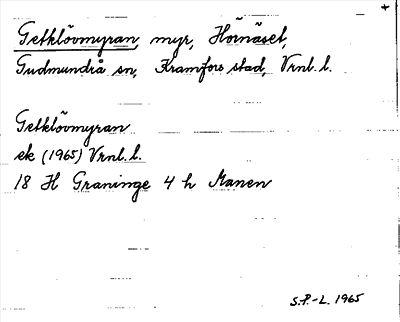 Getklövmyran, myr, Hörnäset,
Gudmundrå sn, Kramfors stad, Vrnl. l.
Getklövmyran
ek (1965) Vrnl. l.
18 H Graninge 4 h Manen
S.P.-L. 1965